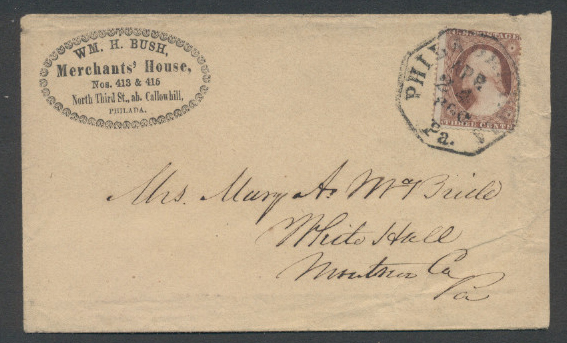 WM. H. BUSH,
Merchants' House,
Nos. 413 & 415
North Third St., ab. Callowhill,
PHILADA.
PHILA
Pa.
THREE CENTS
Mrs. Mary A. McBride
White Hall
Montour Co
Pa